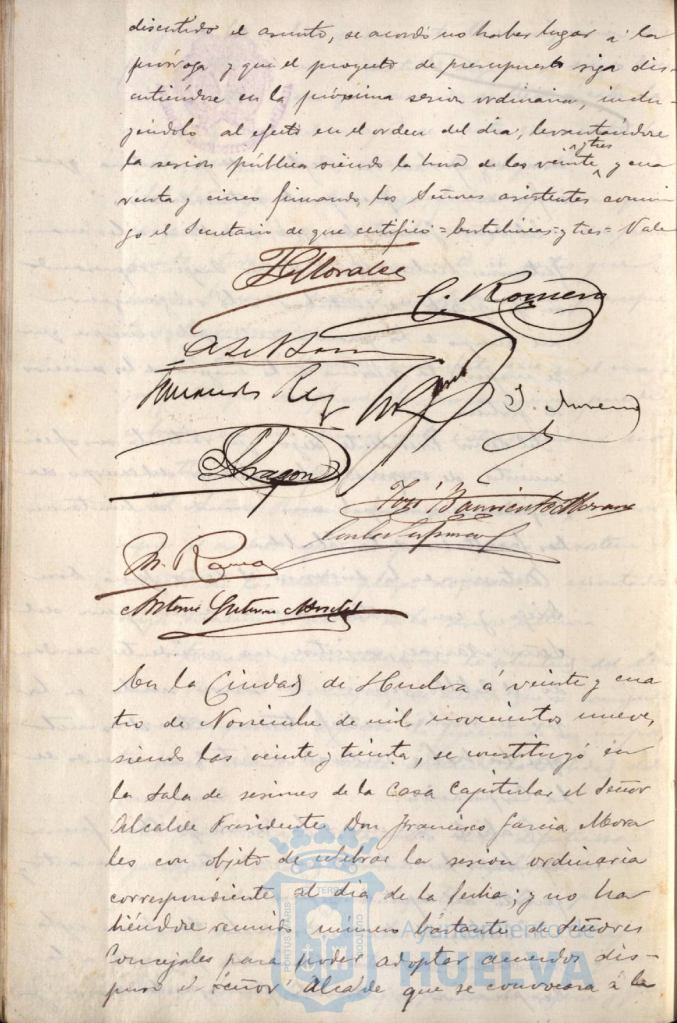 discutido el asunto, se acordó no haber lugar á la
prórroga y que el proyecto de presupuesto siga dis-
cutiéndose en la próxima sesión ordinaria, inclu-
yéndolo al efecto en el orden del día; levantándose
la sesión pública siendo la hora de las veinte y tres y cua
renta y cinco firmando los Señores asistentes conmi
go el Secretario de que certifico = Entrelíneas = y tres = Vale
F. G. Morales
C. Romero
Fernando Rey
J. Moreno
Aragon
José Barrientos Moran
M. Roma
Antonio Gutierrez
En la Ciudad de Huelva á veinte y cua
tro de Noviembre de mil novecientos nueve,
siendo las veinte y treinta, se constituyó en
la sala de sesiones de la Casa Capitular el Señor
Alcalde Presidente Don Francisco García Mora
les con objeto de celebrar la sesión ordinaria
correspondiente al día de la fecha; y no ha-
biéndose reunido número bastante de Señores
Concejales para poder adoptar acuerdos dis-
puso el Señor Alcalde que se convocara á la
PORTUS MARIS ET TERRAE CUSTODIA
Ayuntamiento de
HUELVA